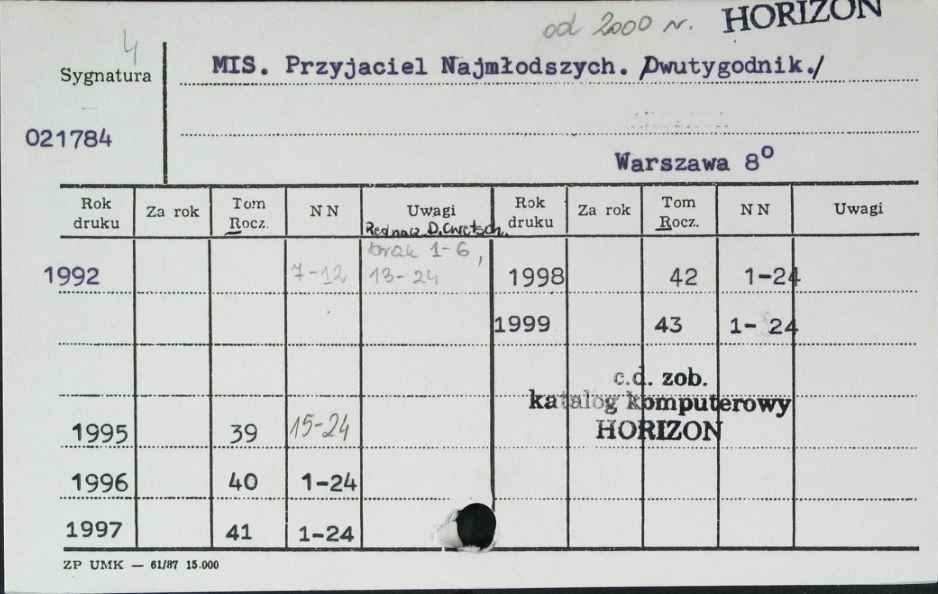 od 2000 r. HORIZON
4
Sygnatura MIS. Przyjaciel Najmłodszych. /Dwutygodnik./
021784
Warszawa 8º
Rok druku Za rok Tom Rocz. NN Uwagi Rok druku Za rok Tom Rocz. NN Uwagi
brak 1-6,
1992 7-12 13-24 1998 42 1-24
1999 43 1-24
c.d. zob.
katalog komputerowy
1995 39 15-24 HORIZON
1996 40 1-24
1997 41 1-24
ZP UMK — 61/87 15.000